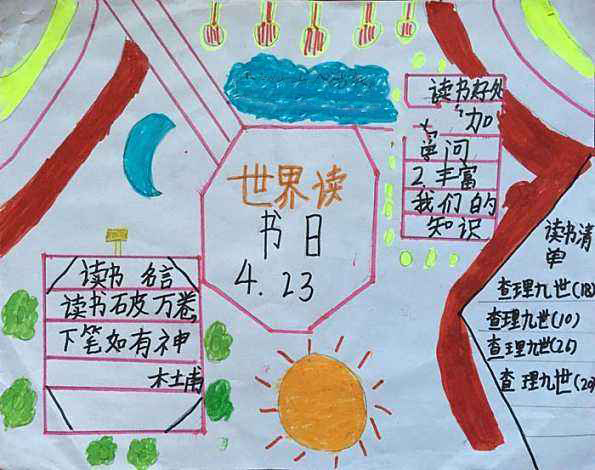 世界读
书日
4.23
读书好处
加
学问
2.丰富
我们的
知识
读书 名言
读书破万卷,
下笔如有神
杜甫
读书清
单
查理九世(18)
查理九世(10)
查理九世
查理九世(20)